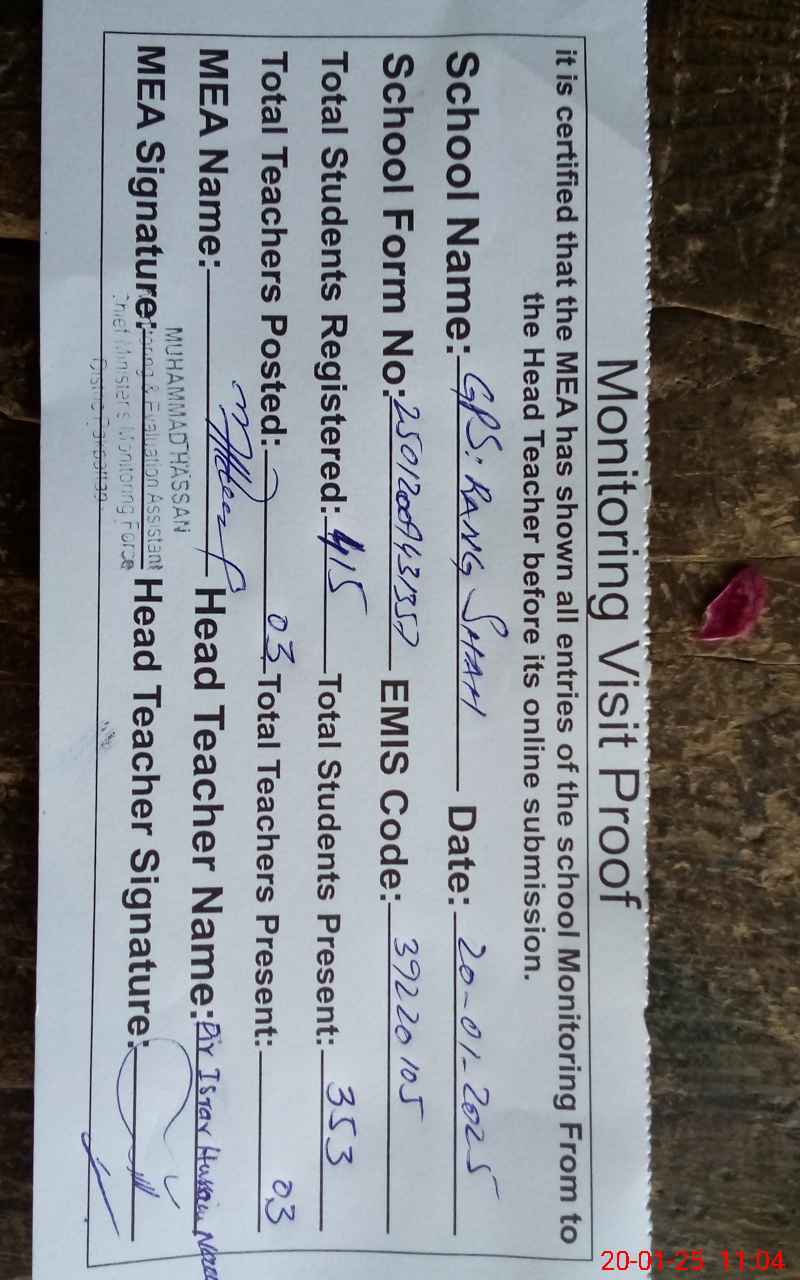 Monitoring Visit Proof
it is certified that the MEA has shown all entries of the school Monitoring From to
the Head Teacher before its online submission.
School Name: GPS: RANG SHAH Date: 20-01-2025
School Form No: EMIS Code: 39220105
Total Students Registered: 415 Total Students Present: 353
Total Teachers Posted: 03 Total Teachers Present: 03
MEA Name: Head Teacher Name: Pir Israr Hussain
MEA Signature: Head Teacher Signature:
MUHAMMAD HASSAN
Monitoring & Evaluation Assistant
Chief Minister's Monitoring Force
20-01-25 11:04